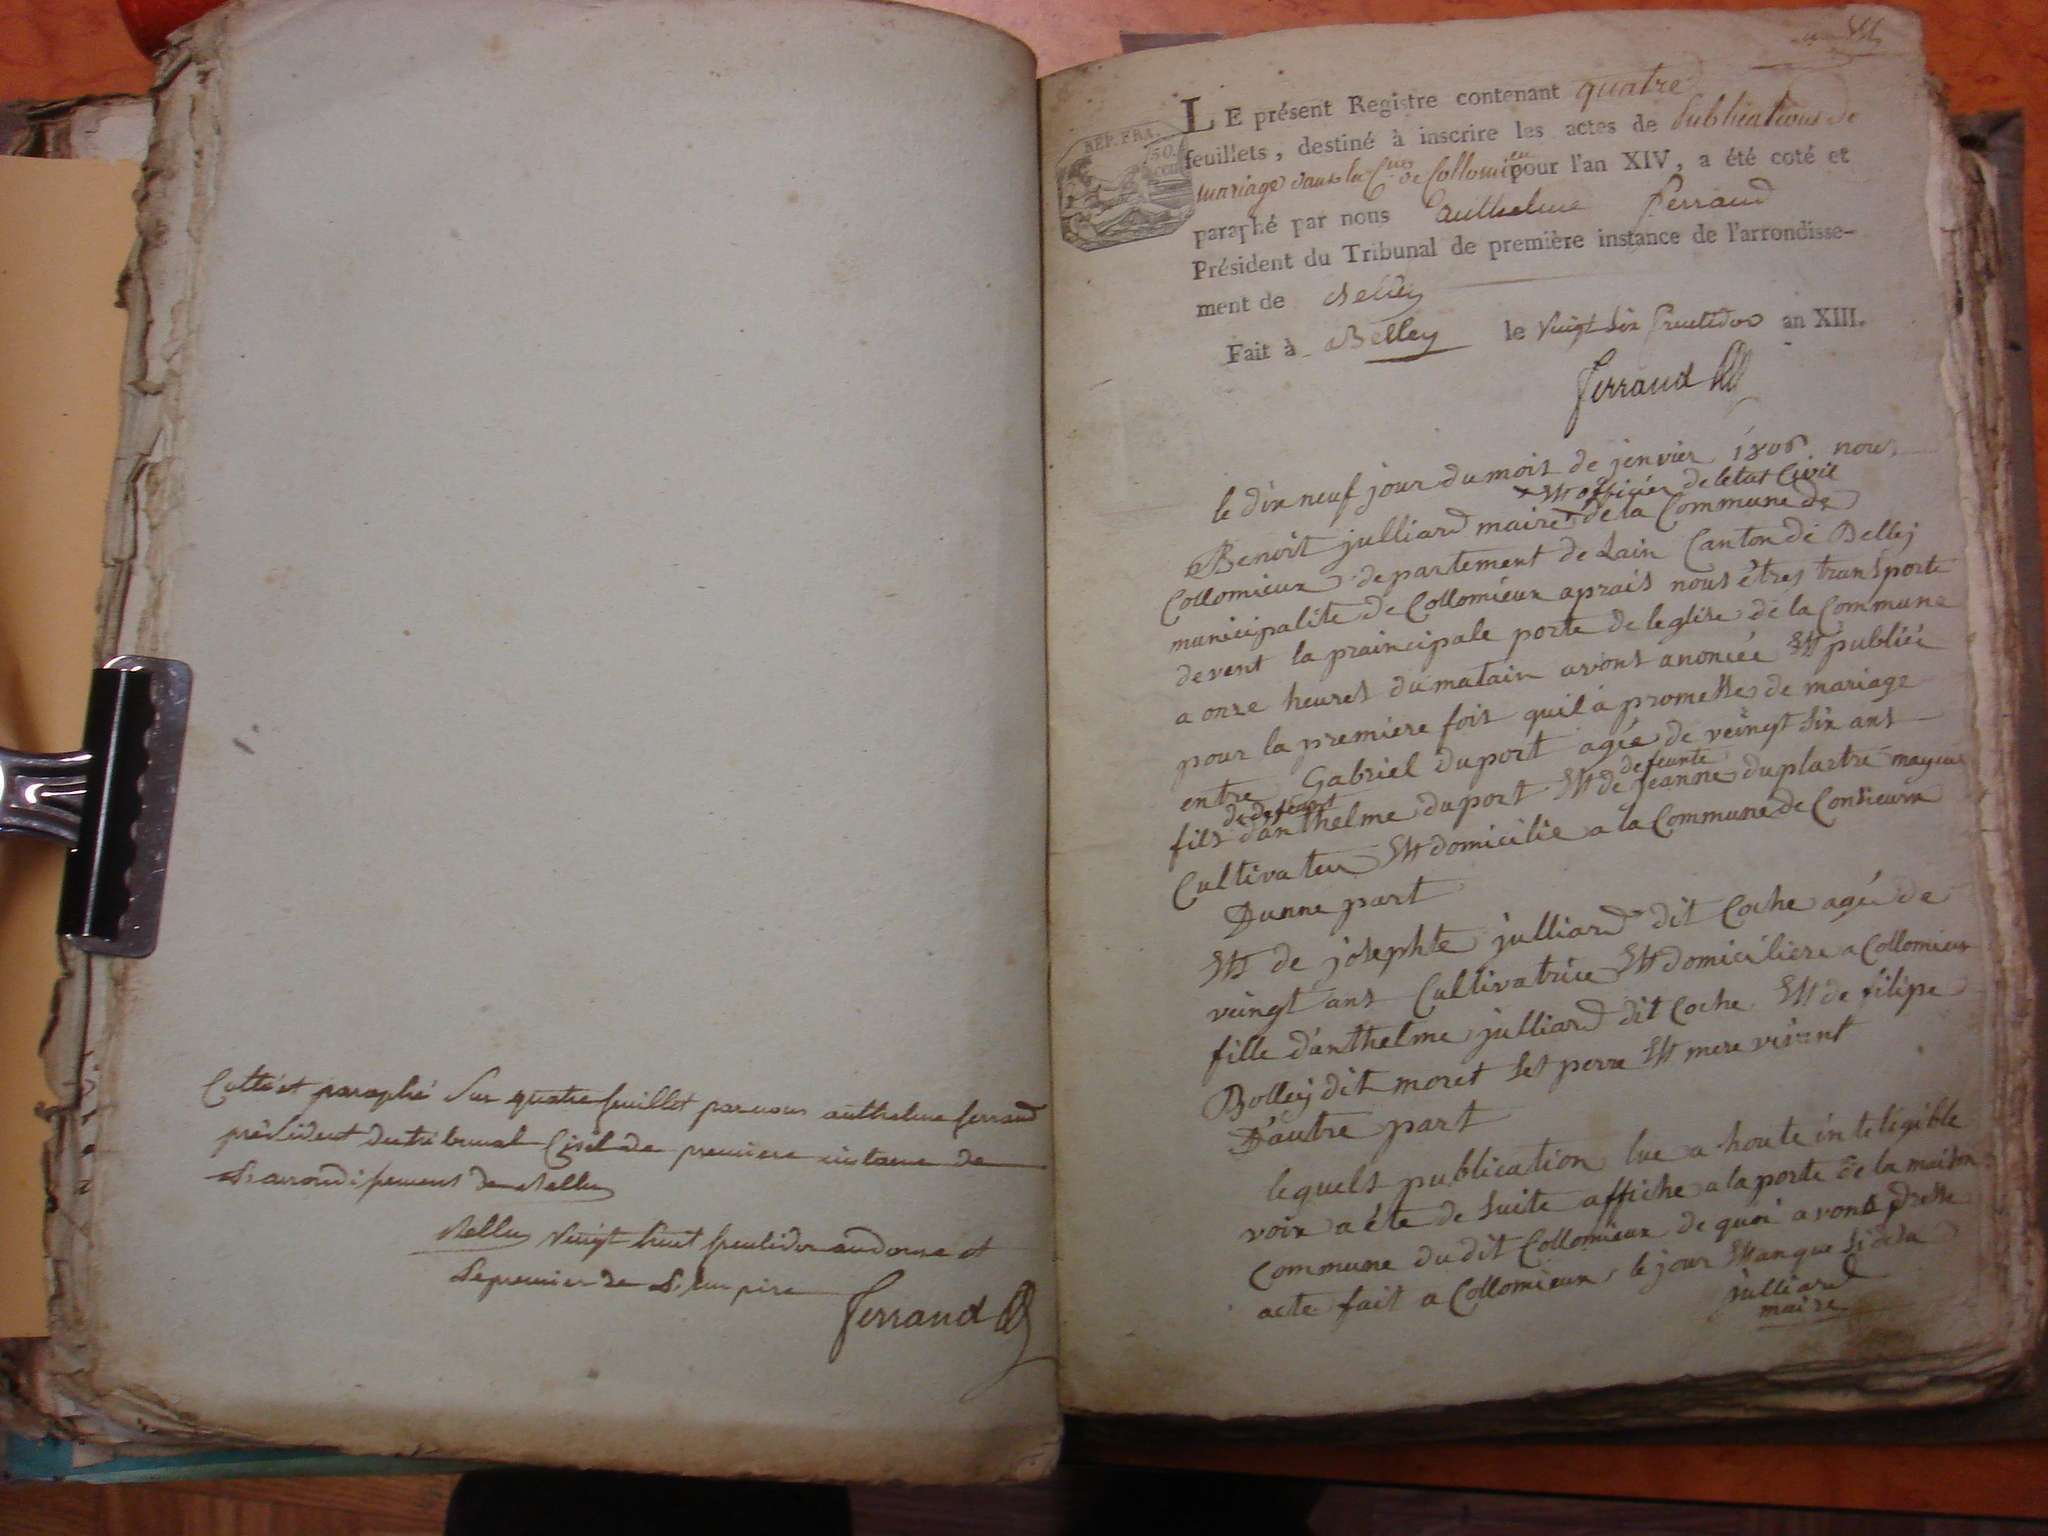 Cotté et paraphé sur quatre feuillet par nous anthelme ferrand
président du tribunal Civil de premiere instance de
L'arrondissement de Belley
Belley vingt huit fructidor an douze et
Le premier de L'empire
ferrand
REP. FRA.
50.
cen
LE présent Registre contenant quatre
feuillets, destiné à inscrire les actes de publications de
mariage dans la Cne de Collomieu pour l'an XIV, a été coté et
paraphé par nous anthelme ferrand
Président du Tribunal de première instance de l'arrondisse-
ment de Belley
Fait à Belley le vingt six fructidor an XIII.
ferrand
le dix neuf jour du mois de jenvier 1806 nous
et officier de letat Civil
Benoit julliard maire de la Commune de
Collomieux departement de Lain Canton de Belley
municipalite de Collomieux aprais nous êtres transporte
devent la praincipale porte de leglise de la Commune
a onze heures du matain avons anoncée et publiée
pour la premiere fois quil a promesse de mariage
entre Gabriel duport agée de veingt six ans
de defeunt defeunte
fils d'anthelme duport et de jeanne duplastre mayeur
Cultivateur et domicilie a la Commune de Consieux
Dunne part
et de josephte julliard dit Coche agée de
veingt ans Cultivatrice et domiciliere a Collomieux
fille d'anthelme julliard dit Coche et de filipe
Bolley dit moret ses perre et mere vivent
D'autre part
lequels publication lue a houte inteligible
voix a éte de suite affiche a la porte de la maison
Commune du dit Collomieux de quoi avons dresse
acte fait a Collomieux, le jour et an que si desu
julliard
maire